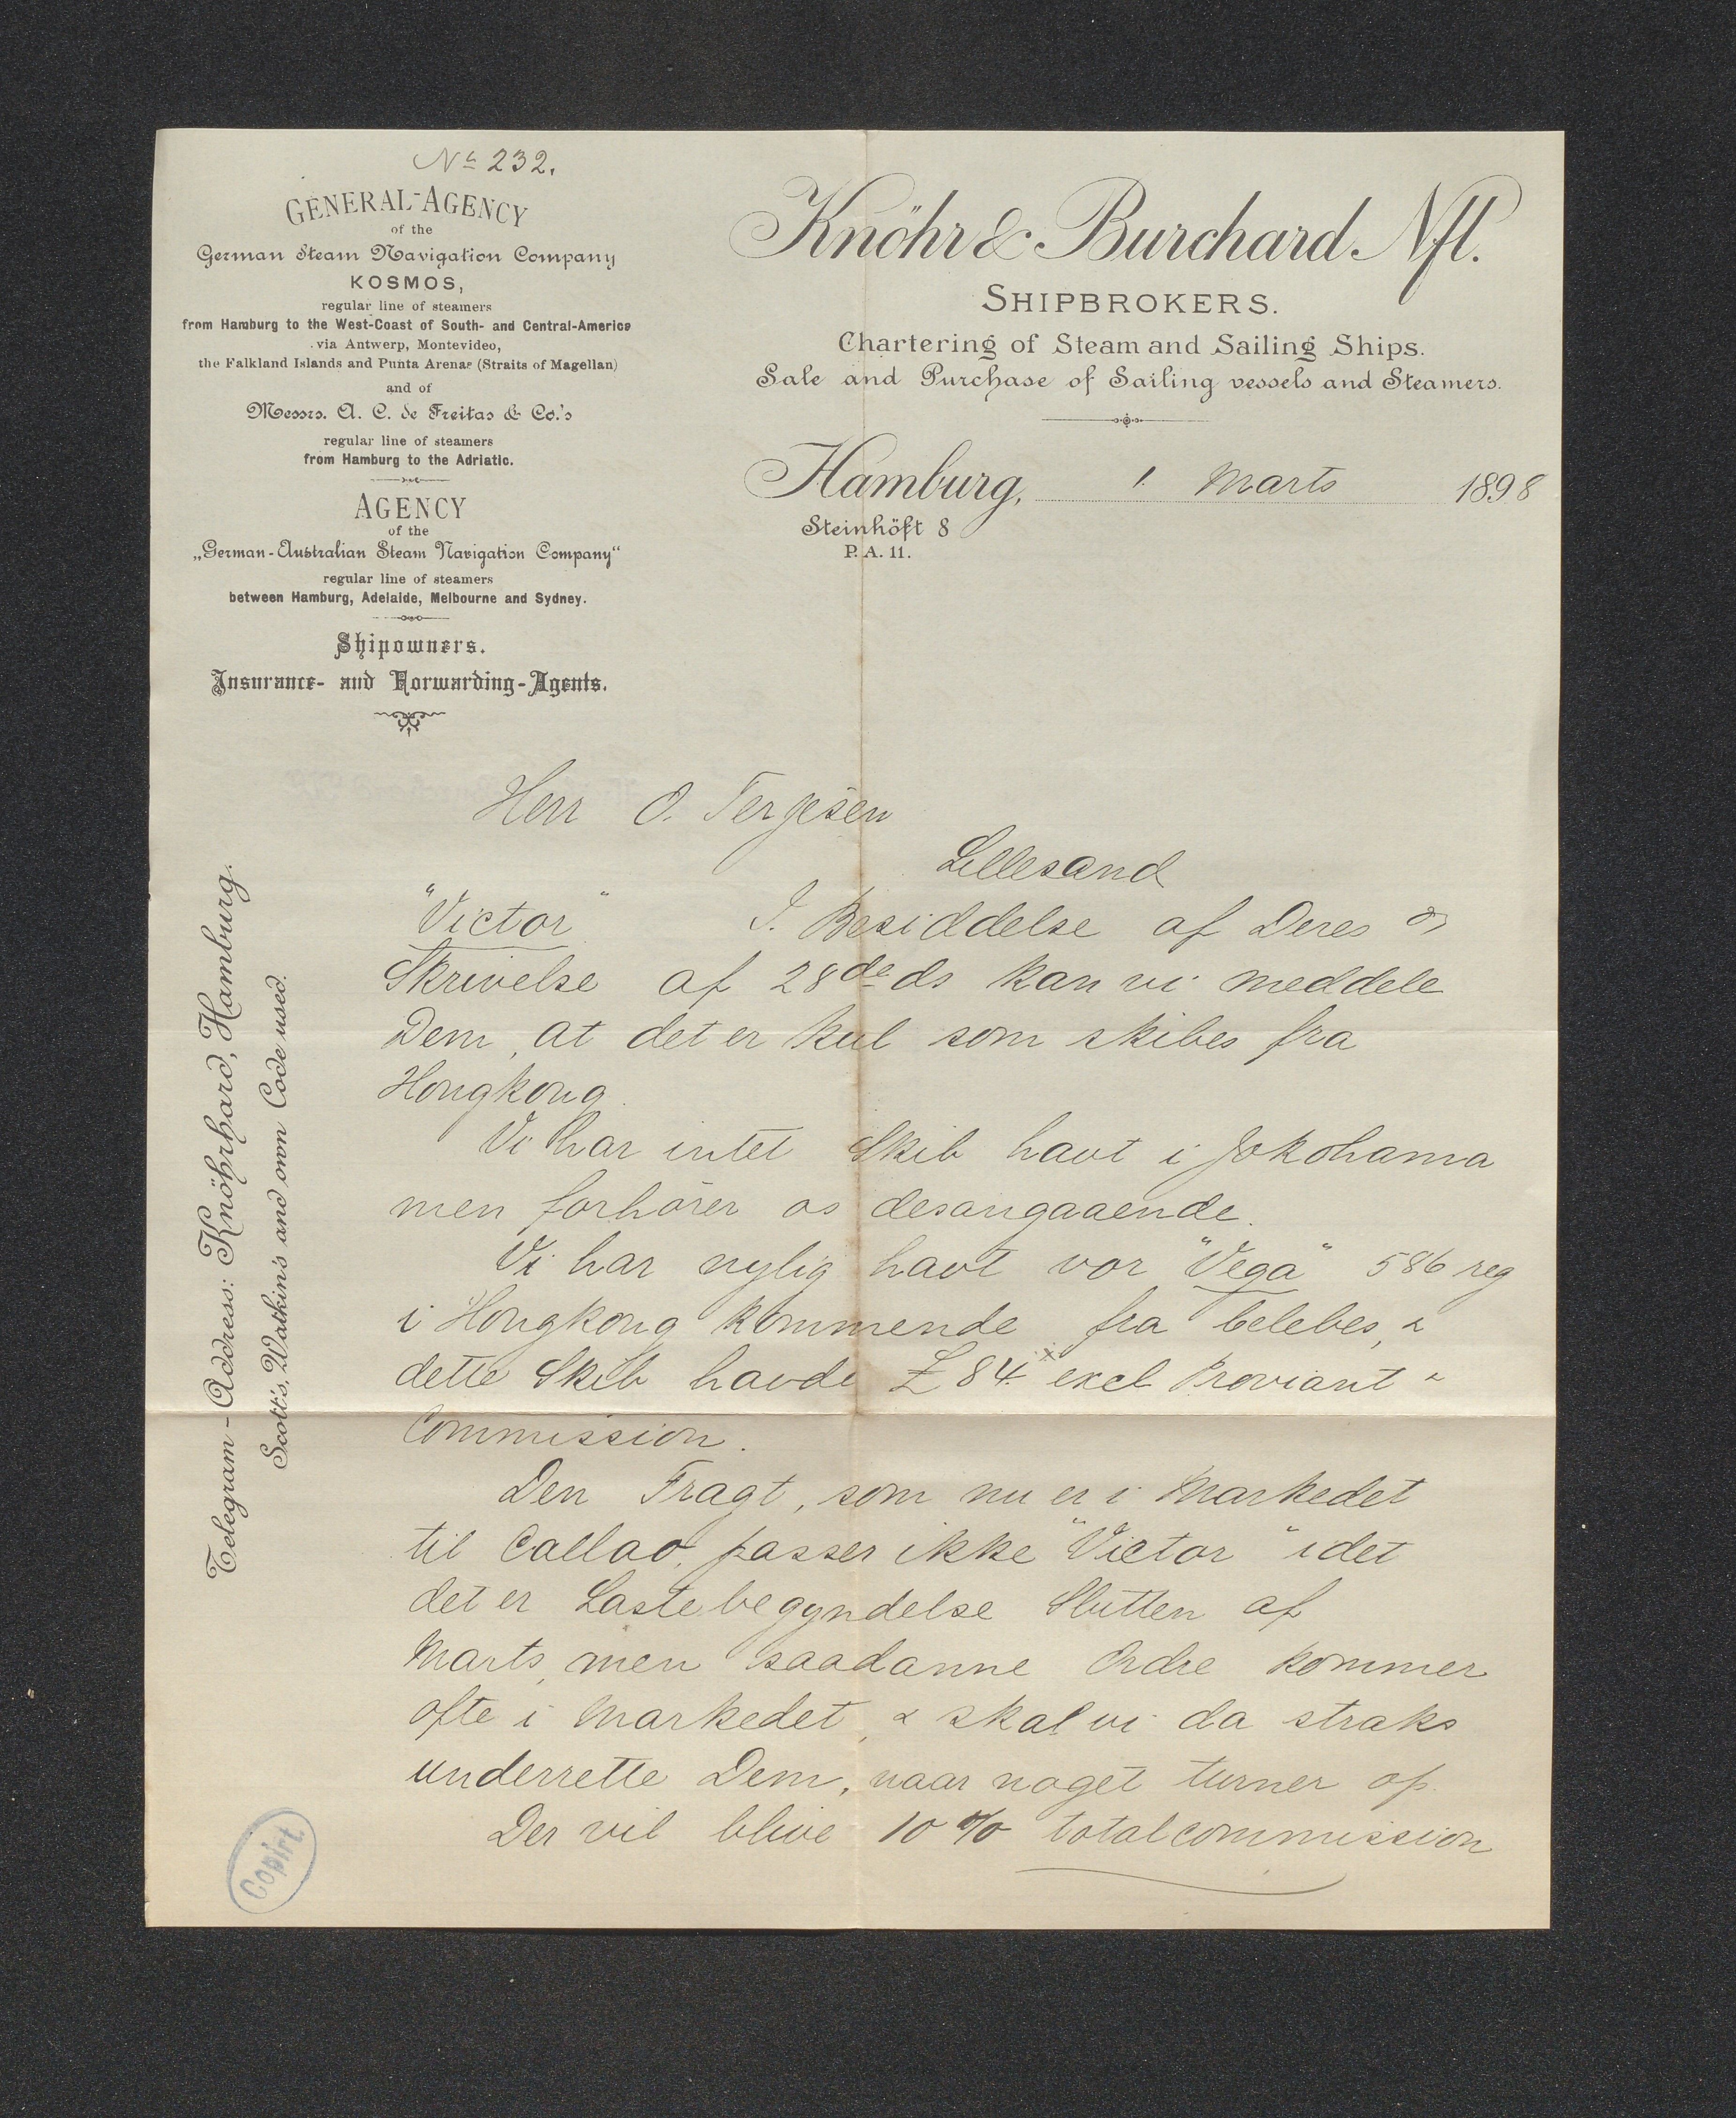 No 232.
GENERAL-AGENCY
of the
German Steam Navigation Company
KOSMOS,
regular line of steamers
from Hamburg to the West-Coast of South- and Central-America
via Antwerp, Montevideo,
the Falkland Islands and Punta Arenas (Straits of Magellan)
and of
Messrs. A. C. de Freitas & Co.'s
regular line of steamers
from Hamburg to the Adriatic.
AGENCY
of the
„German-Australian Steam Navigation Company“
regular line of steamers
between Hamburg, Adelaide, Melbourne and Sydney.
Shipowners.
Insurance- and Forwarding-Agents.
Knöhr & Burchard Nfl.
SHIPBROKERS.
Chartering of Steam and Sailing Ships.
Sale and Purchase of Sailing vessels and Steamers.
Hamburg, 1. Marts 1898
Steinhöft 8
P. A. 11.
Telegram-Address: Knöhrhard, Hamburg.
Scott's, Watkin's and own Code used.
Herr O. Terjesen
Lillesand
"Victor" I Besiddelse af Deres
Skrivelse af 28de ds kan vi meddele
Dem, at det er kul som skibes fra
Hongkong.
Vi har intet Skib havt i Jokohama
men forhører os desangaaende.
Vi har nylig havt vor "Vega" 586 reg
i Hongkong kommende fra Celebes, &
dette Skib havde £ 84 excl Proviant &
Commission.
Den Fragt, som nu er i Markedet
til Callao, passer ikke "Victor" idet
det er Lastebegyndelse Slutten af
Marts, men saadanne Ordre kommer
ofte i Markedet, & skal vi da straks
underrette Dem, naar noget turner op.
Der vil blive 10 % totalcommission
Copirt